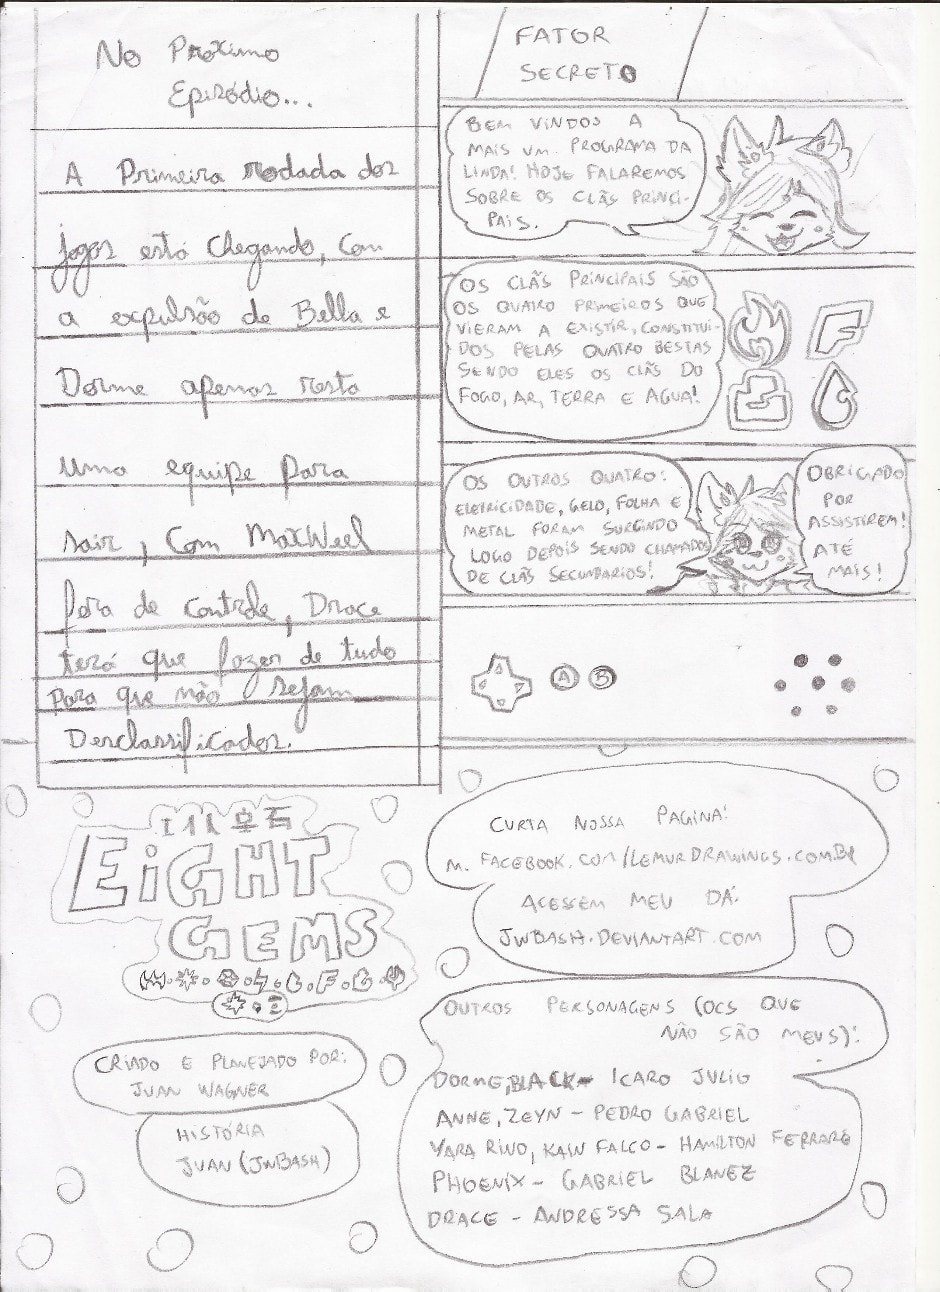 No Próximo
Episódio...
A Primeira rodada dos
jogos está Chegando, Com
a expulsão de Bella e
Dorme apenas resta
uma equipe para
sair, Com MaxWeel
fora de Controle, Drace
terá que fazer de tudo
para que não sejam
Desclassificados.
FATOR
SECRETO
BEM VINDOS A
MAIS UM PROGRAMA DA
LINDA! HOJE FALAREMOS
SOBRE OS CLÃS PRINCI-
PAIS.
OS CLÃS PRINCIPAIS SÃO
OS QUATRO PRIMEIROS QUE
VIERAM A EXISTIR, CONSTITUI-
DOS PELAS QUATRO BESTAS
SENDO ELES OS CLÃS DO
FOGO, AR, TERRA E AGUA!
OS OUTROS QUATRO:
ELETRICIDADE, GELO, FOLHA E
METAL FORAM SURGINDO
LOGO DEPOIS SENDO CHAMADOS
DE CLÃS SECUNDARIOS!
OBRIGADO
POR
ASSISTIREM!
ATÉ
MAIS!
A B
EIGHT
GEMS
CURTA NOSSA PAGINA:
M.FACEBOOK.COM/LEMURDRAWINGS.COM.BR
ACESSEM MEU DÁ:
JWBASH.DEVIANTART.COM
CRIADO E PLANEJADO POR:
JUAN WAGNER
HISTÓRIA
JUAN (JWBASH)
OUTROS PERSONAGENS (OCS QUE
NÃO SÃO MEUS):
DORME, BLACK - ICARO JULIO
ANNE, ZEYN - PEDRO GABRIEL
YARA RINO, KAIN FALCO - HAMILTON FERRARE
PHOENIX - GABRIEL BLANEZ
DRACE - ANDRESSA SALA